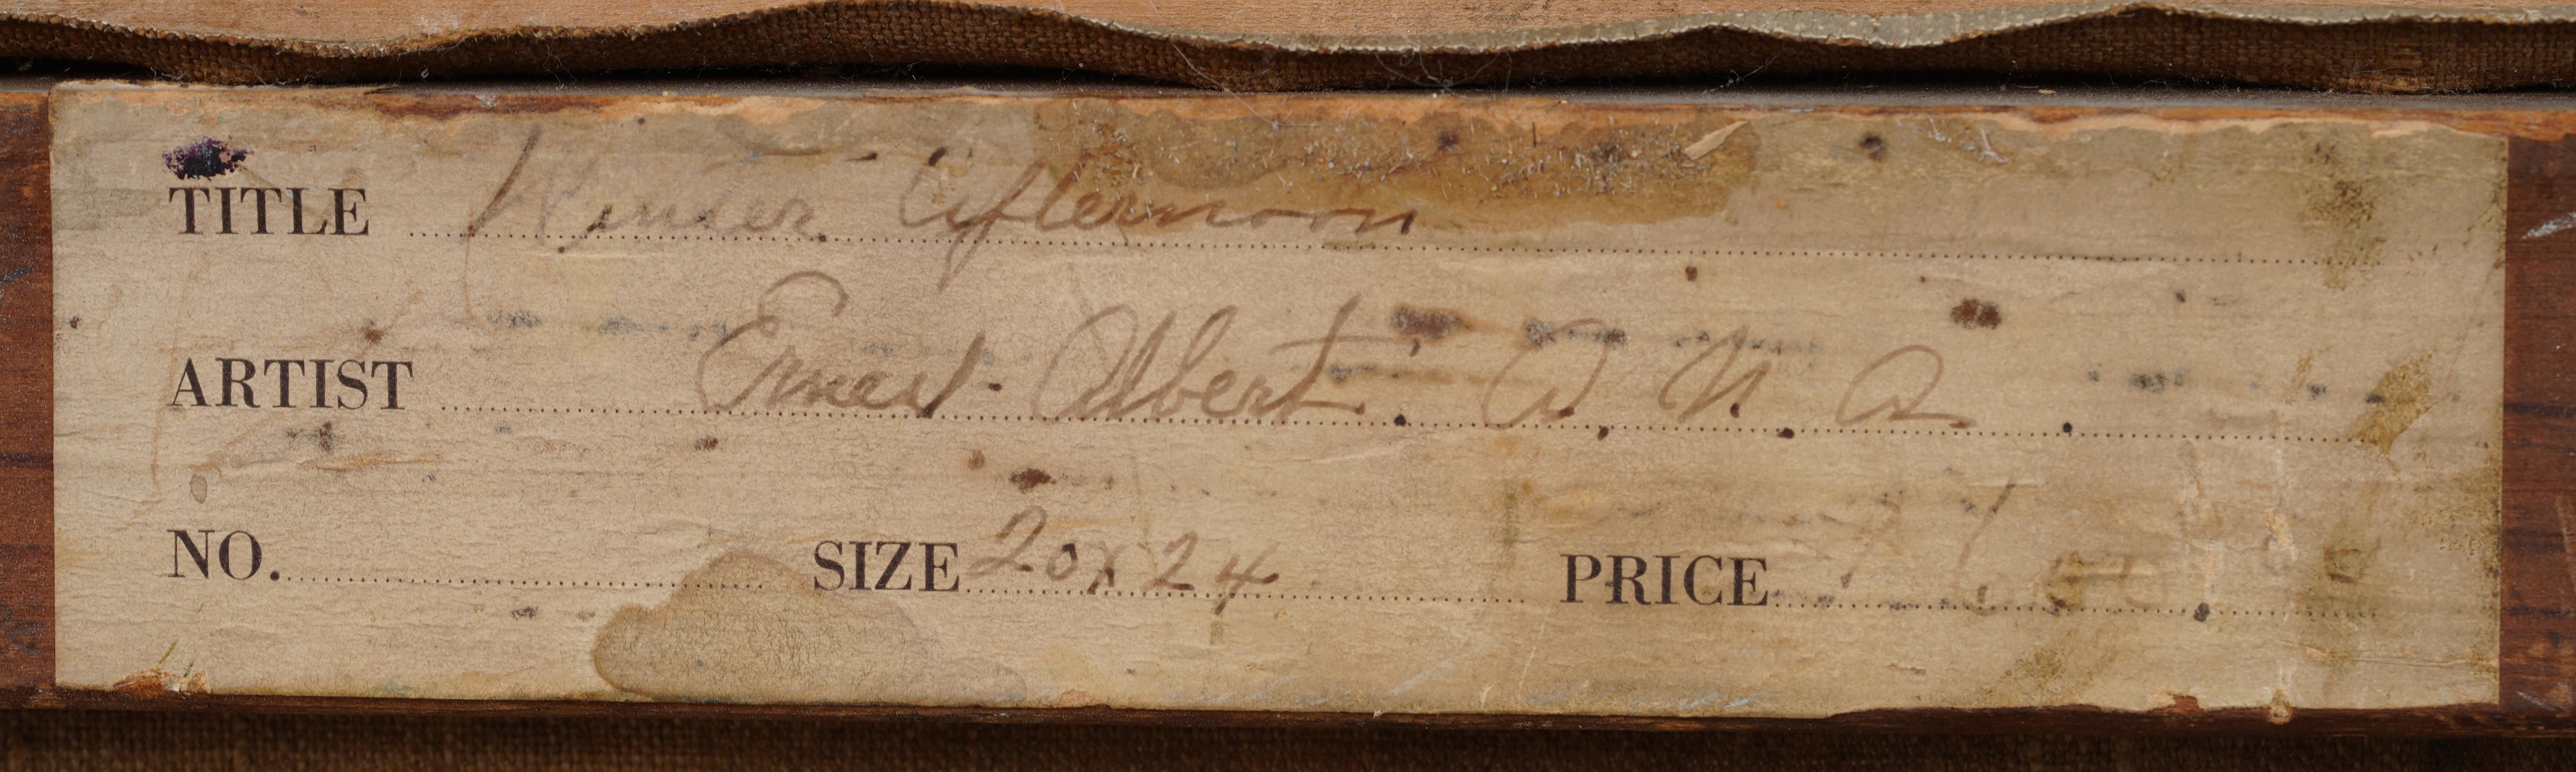 TITLE Winter Afternoon
ARTIST Ernest Albert. A. N. A.
NO. SIZE 20 x 24 PRICE